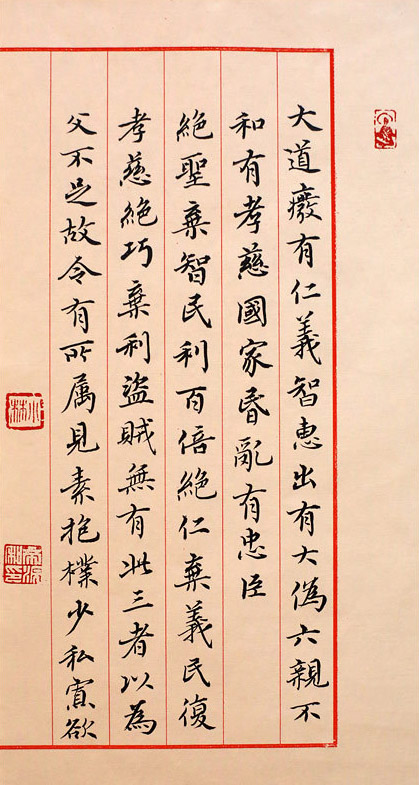 大道癈有仁義智惠出有大偽六親不
和有孝慈國家昏亂有忠臣
絕聖棄智民利百倍絕仁棄義民復
孝慈絕巧棄利盜賊無有此三者以為
文不足故令有所属見素抱樸少私寡欲